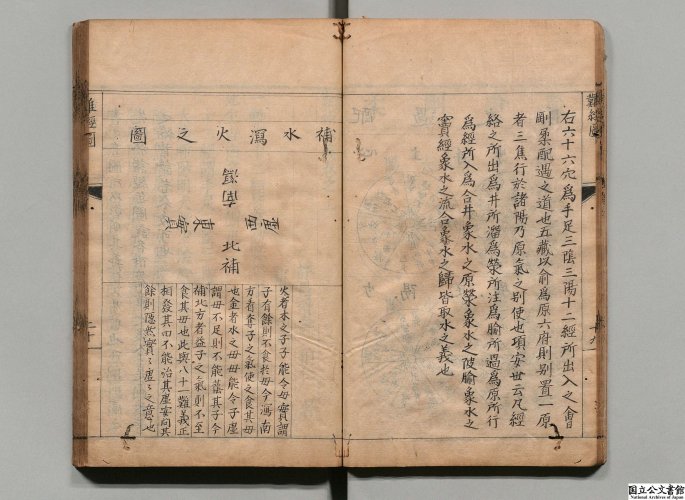 右六十六穴爲手足三陰三陽十二經所出入之會
剛柔配遇之道也五藏以俞爲原六府則別置一原
者三焦行於諸陽乃原氣之別使也項安世云凡經
絡之所出爲井所溜爲滎所注爲腧所過爲原所行
爲經所入爲合井象水之原滎象水之陂腧象水之
竇經象水之流合象水之歸皆取水之義也
難經圖
補水瀉火之圖
南瀉
東實
西虛
北補
火者木之子子能令母實謂
子有餘則不食於母今瀉南
方者奪子之氣使之食其母
也金者水之母母能令子虛
謂母不足則不能蔭其子今
補北方者益子之氣則不至
食其母也此與八十一難義正
相發其曰不能治其虛安問其
餘則隱然實實虛虛之意也
難經圖
国立公文書館
National Archives of Japan